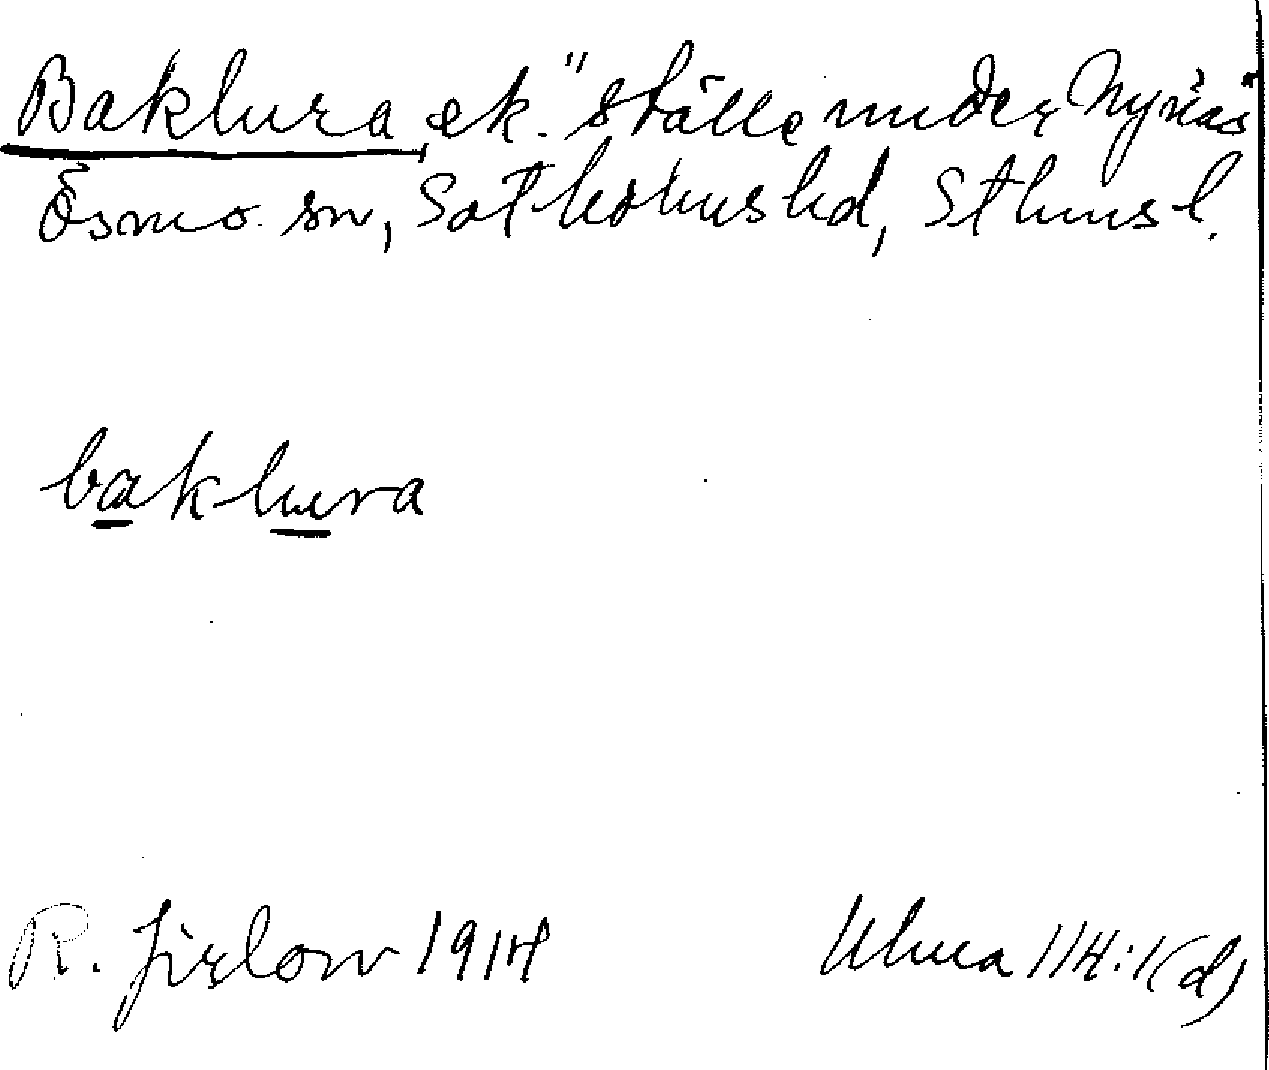 Baklura, ek. "ställe under Nynäs"
Ösmo sn, Sotholms hd, Sthms l.
baklura
R. Jirlow 1914
Ulma 114:1(d)